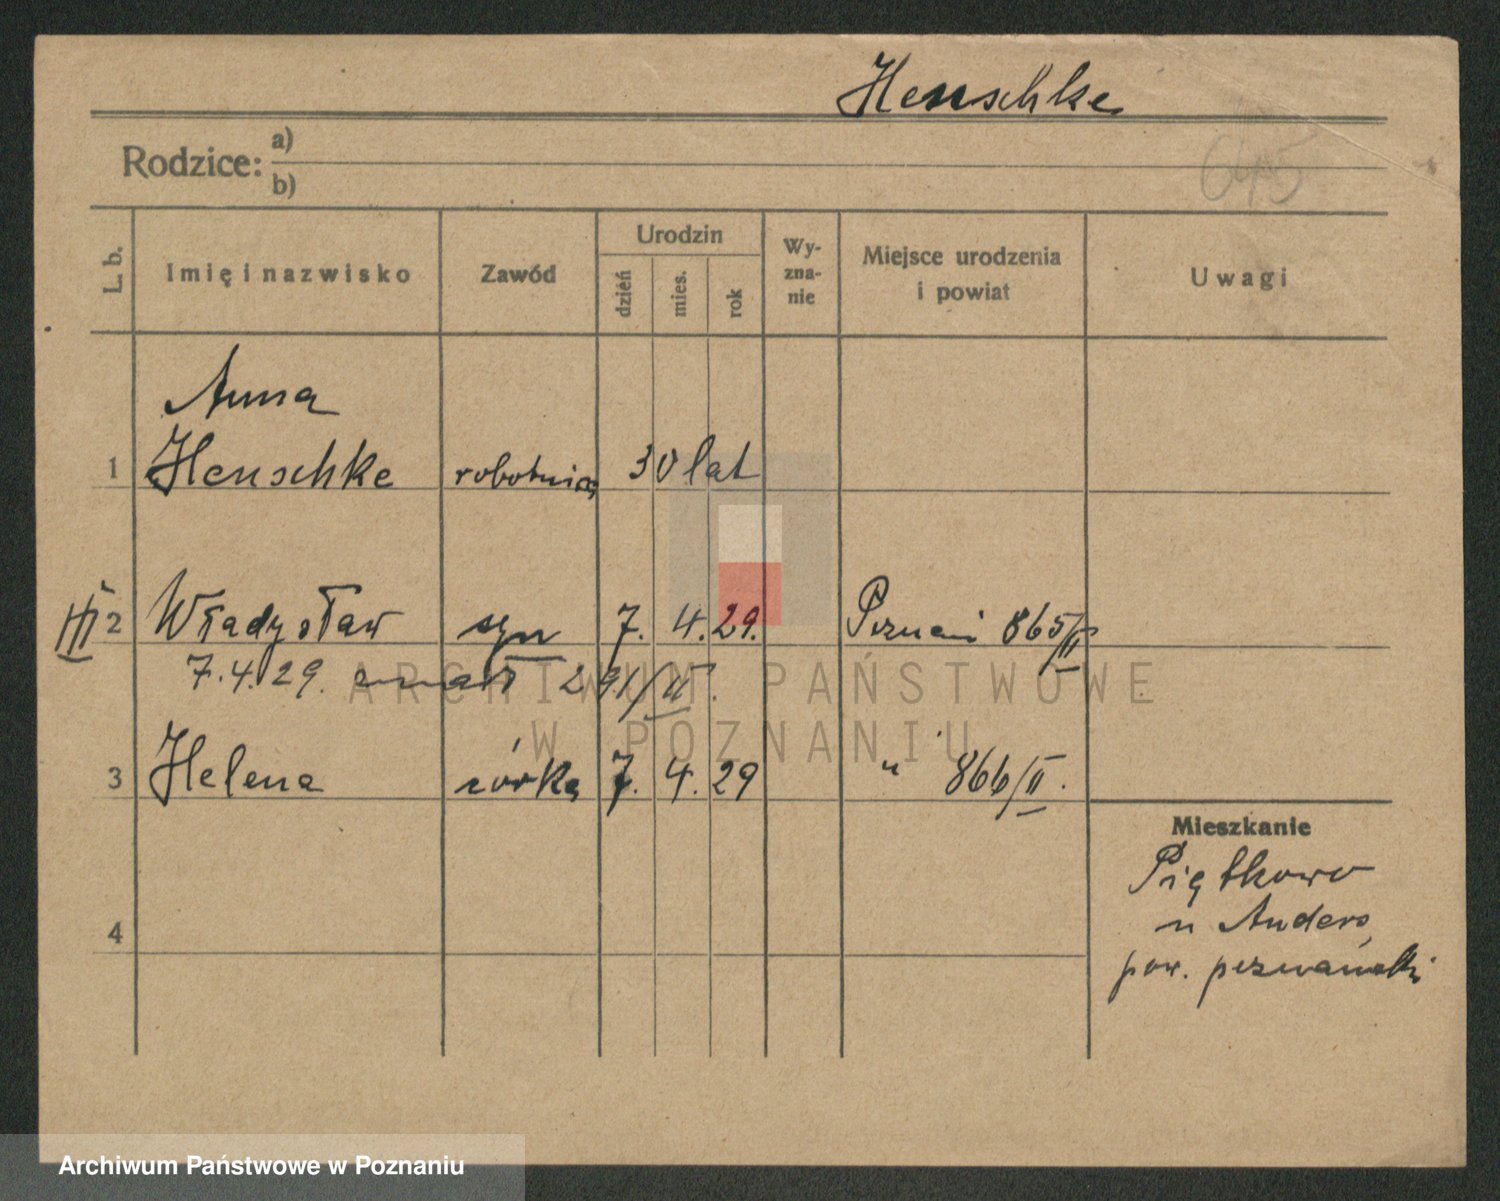 Henschke
645
Rodzice: a)
b)
L. b. Imię i nazwisko Zawód Urodzin dzień mies. rok Wy-zna-nie Miejsce urodzenia i powiat Uwagi
Anna
1 Henschke robotnica 30 lat
III 2 Władysław syn 7. 4. 29. Poznań 865/II
7.4.29. zmarł 291/II.
ARCHIWUM PAŃSTWOWE
W POZNANIU
3 Helena córka 7. 4. 29 " 866/II.
Mieszkanie
Piątkowo
u Anders,
4
pow. poznański
Archiwum Państwowe w Poznaniu